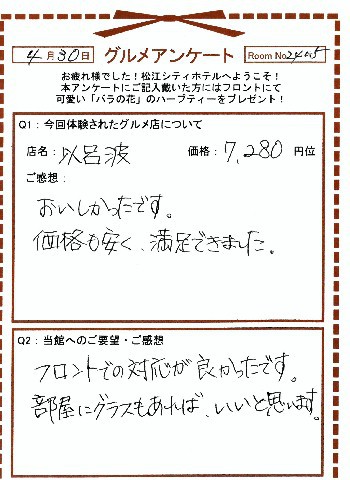 4月30日 グルメアンケート Room No.2405
お疲れ様でした!松江シティホテルへようこそ!
本アンケートにご記入戴いた方にはフロントにて
可愛い「バラの花」のハーブティーをプレゼント!
Q1:今回体験されたグルメ店について
店名: 以呂波 価格: 7,280 円位
ご感想:
おいしかったです。
価格も安く、満足できました。
Q2:当館へのご要望・ご感想
フロントでの対応が良かったです。
部屋にグラスもあれば、いいと思います。